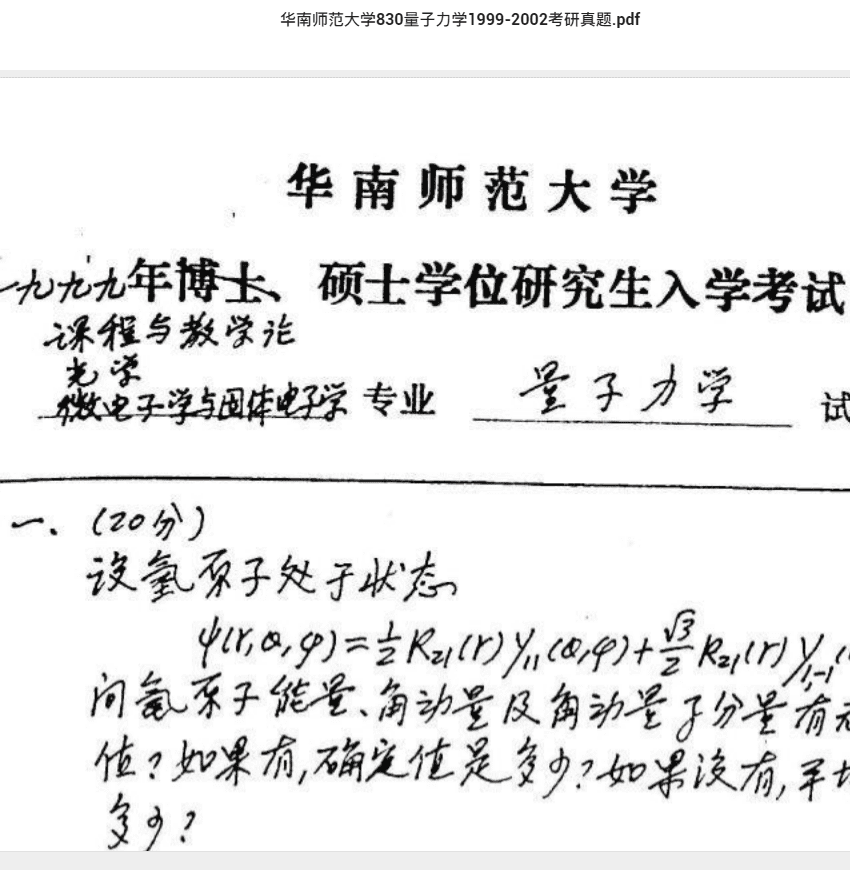 华南师范大学830量子力学1999-2002考研真题.pdf
华南师范大学
一九九九年博士、硕士学位研究生入学考试
课程与教学论
光学
微电子学与固体电子学专业 量子力学 试
一. (20分)
设氢原子处于状态
ψ(r,θ,φ)=½R₂₁(r)Y₁₁(θ,φ)+√3/2 R₂₁(r)Y₁,₋₁(
问氢原子能量、角动量及角动量z分量有
值？如果有,确定值是多少？如果没有,平
多少？